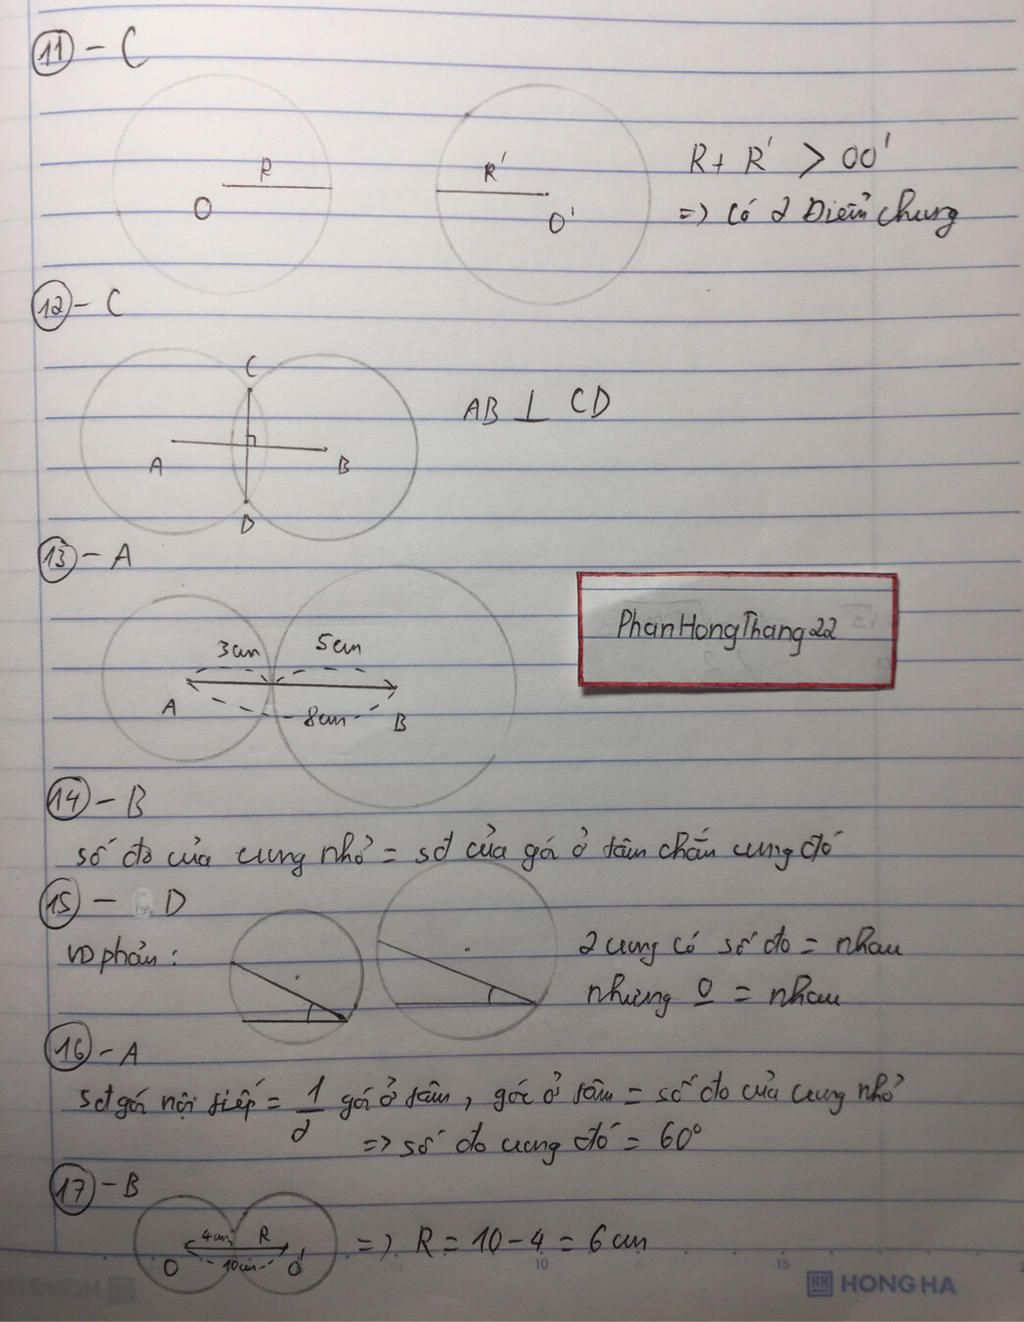 11 - C
R R' R + R' > OO'
O O' => Có 2 Điểm chung
12 - C
C
AB ⊥ CD
A B
D
13 - A
3cm 5cm PhanHongThang22
A 8cm B
14 - B
số đo của cung nhỏ = sđ của góc ở tâm chắn cung đó
15 - D
VD phản : 2 cung có số đo = nhau
nhưng O = nhau
16 - A
sđ góc nội tiếp = 1/2 góc ở tâm, góc ở tâm = số đo của cung nhỏ
=> số đo cung đó = 60°
17 - B
4cm R => R = 10 - 4 = 6 cm
O 10cm O'
10 15
HONG HA